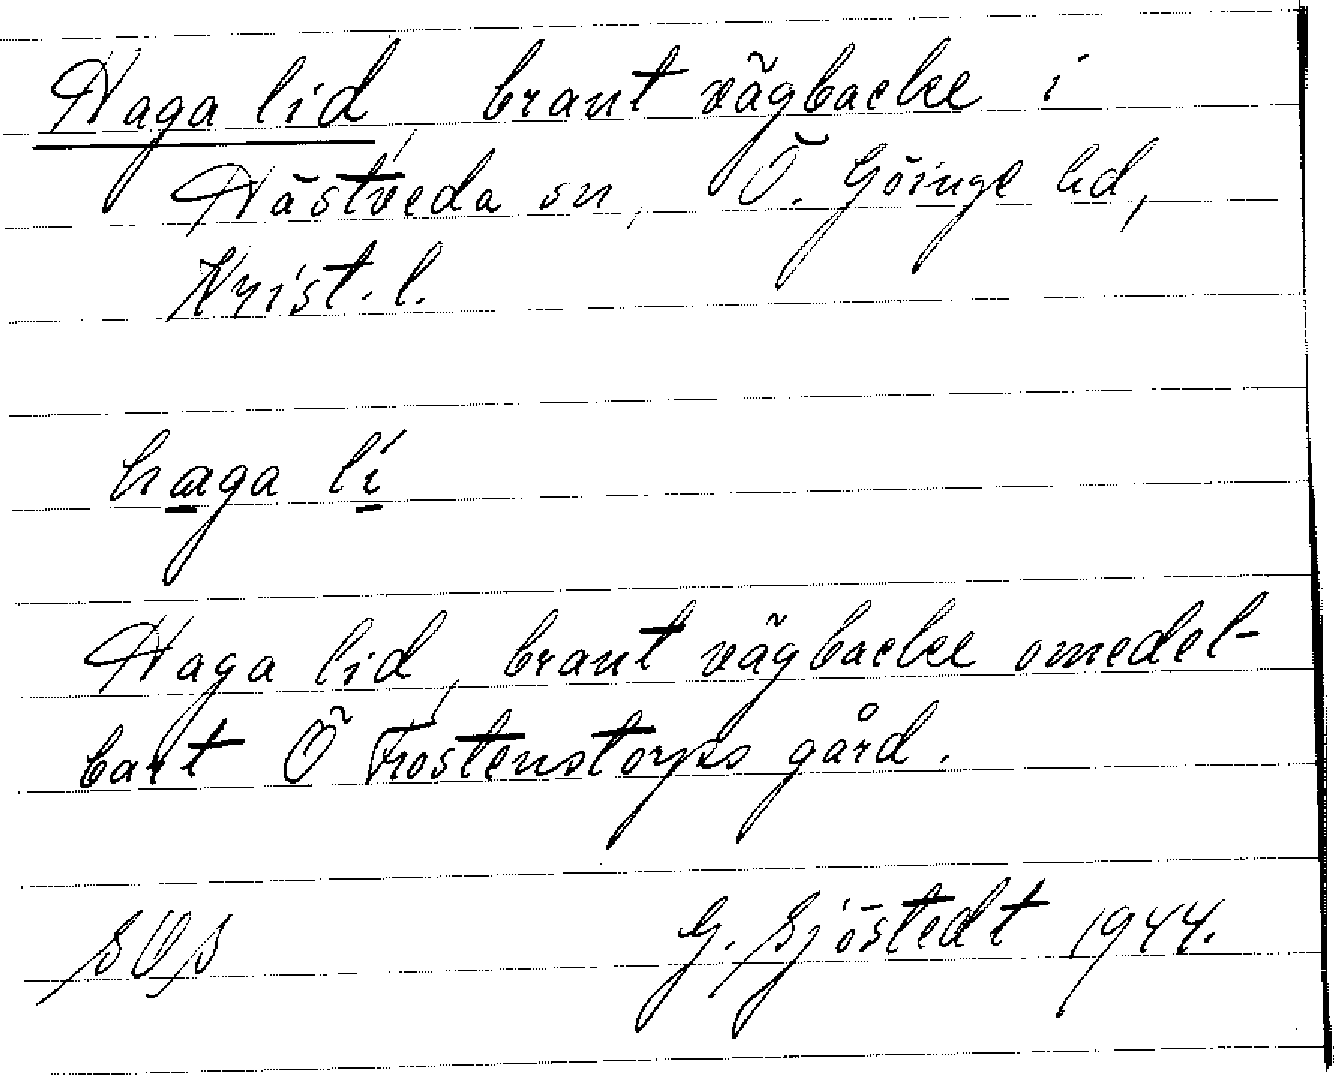 Haga lid, brant vägbacke i
Hästveda sn, Ö. Göinge hd,
Krist. l.
haga li
Haga lid, brant vägbacke omedel-
bart Ö Frostenstorps gård.
SOS G. Sjöstedt 1944.